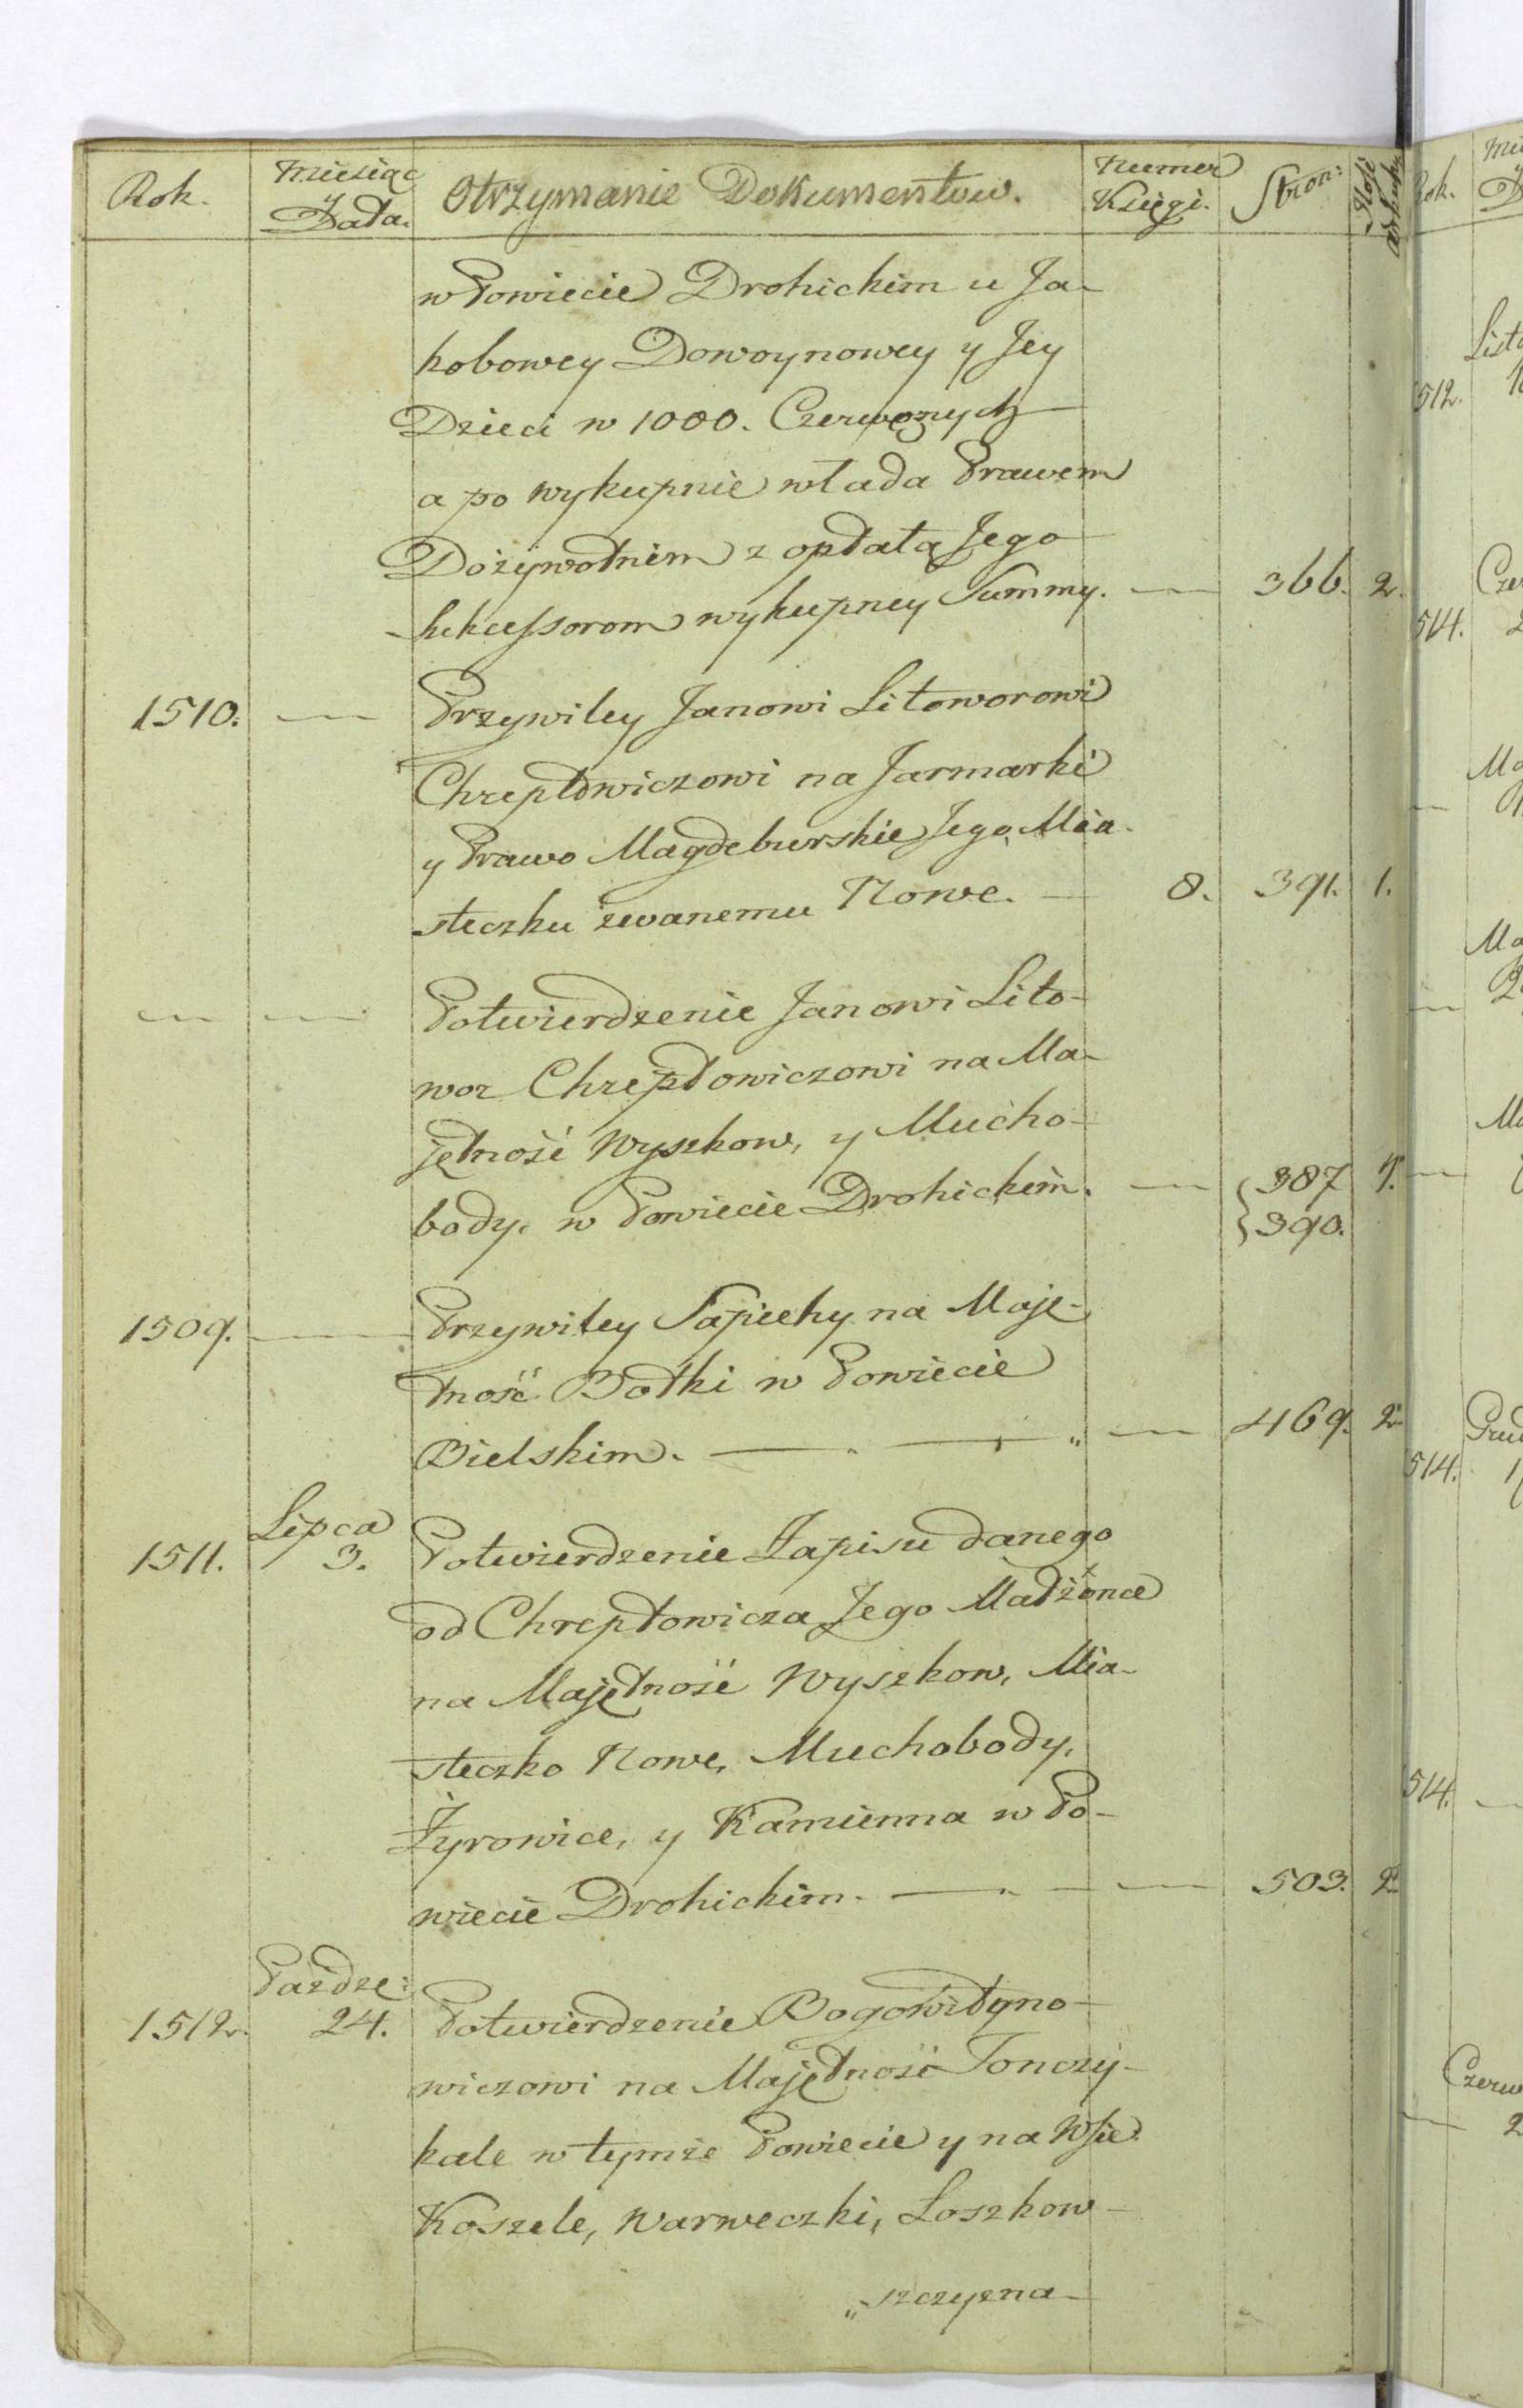 Rok.
Miesiąc
y
Data.
Otrzymanie Dokumentow.
Numer
Księgi.
Stron:
Ilość
arkuszy
w Powiecie Drohickim u Ja-
kobowey Dowoynowey y Jey
Dzieci w 1000. Czerwonych
a po wykupnie włada Prawem
Dożywotnim z opłatą Jego
sukcessorom wykupney Summy. — 366. 2.
1510. — Przywiley Janowi Litoworowi
Chreptowiczowi na Jarmarki
y Prawo Magdeburskie Jego Mia-
steczku zwanemu Nowe. — 8. 391. 1.
— — Potwierdzenie Janowi Lito-
wor Chreptowiczowi na Ma-
jętność Wyszkow, y Mucho-
body. w Powiecie Drohickim. — 387 4.
390.
1509. — Przywiley Sapiehy na Maję-
tność Boćki w Powiecie
Bielskim. — — " — 469. 2.
Lipca
1511. 3. Potwierdzenie Zapisu danego
od Chreptowicza Jego Małżonce
na Majętność Wyszkow, Mia-
steczko Nowe, Muchobody,
Żyrowice, y Kamienna w Po-
wiecie Drohickim. — — 503. 2.
Paźdze:
1512. 24. Potwierdzenie Bogowityno-
wiczowi na Majętność Tonczy-
kale w tymże Powiecie y na Wsie
Koszele, Warweczki, Loszkow-
„szczyzna
Rok.
512.
514.
514.
514.